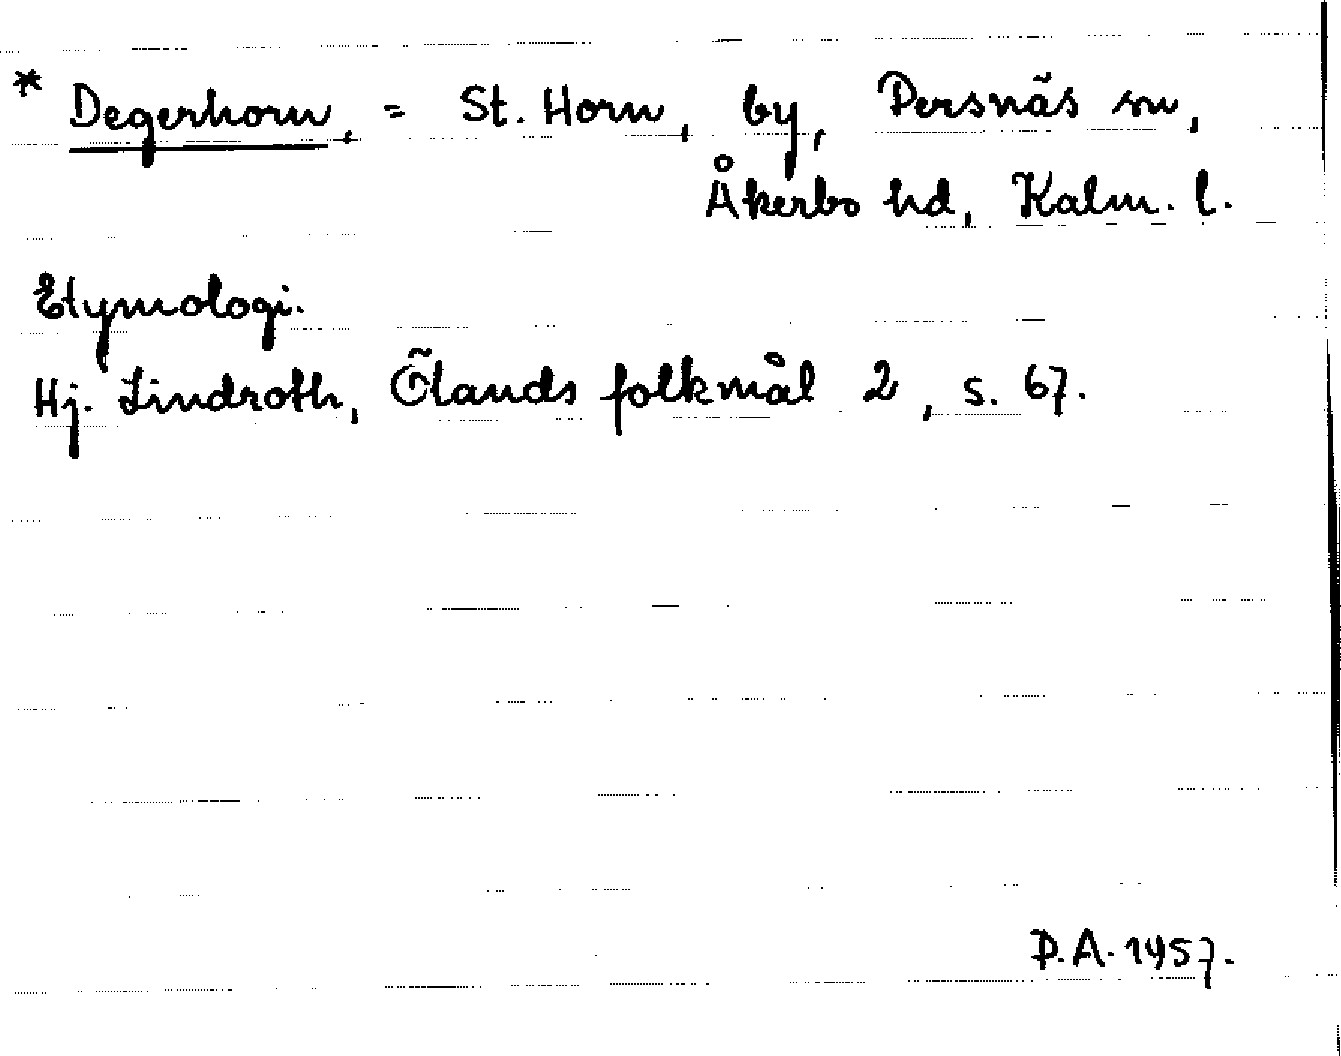 * Degerhorn, = St. Horn, by, Persnäs sn,
Åkerbo hd, Kalm. l.
Etymologi.
Hj. Lindroth, Ölands folkmål 2, s. 67.
P.A. 1957.